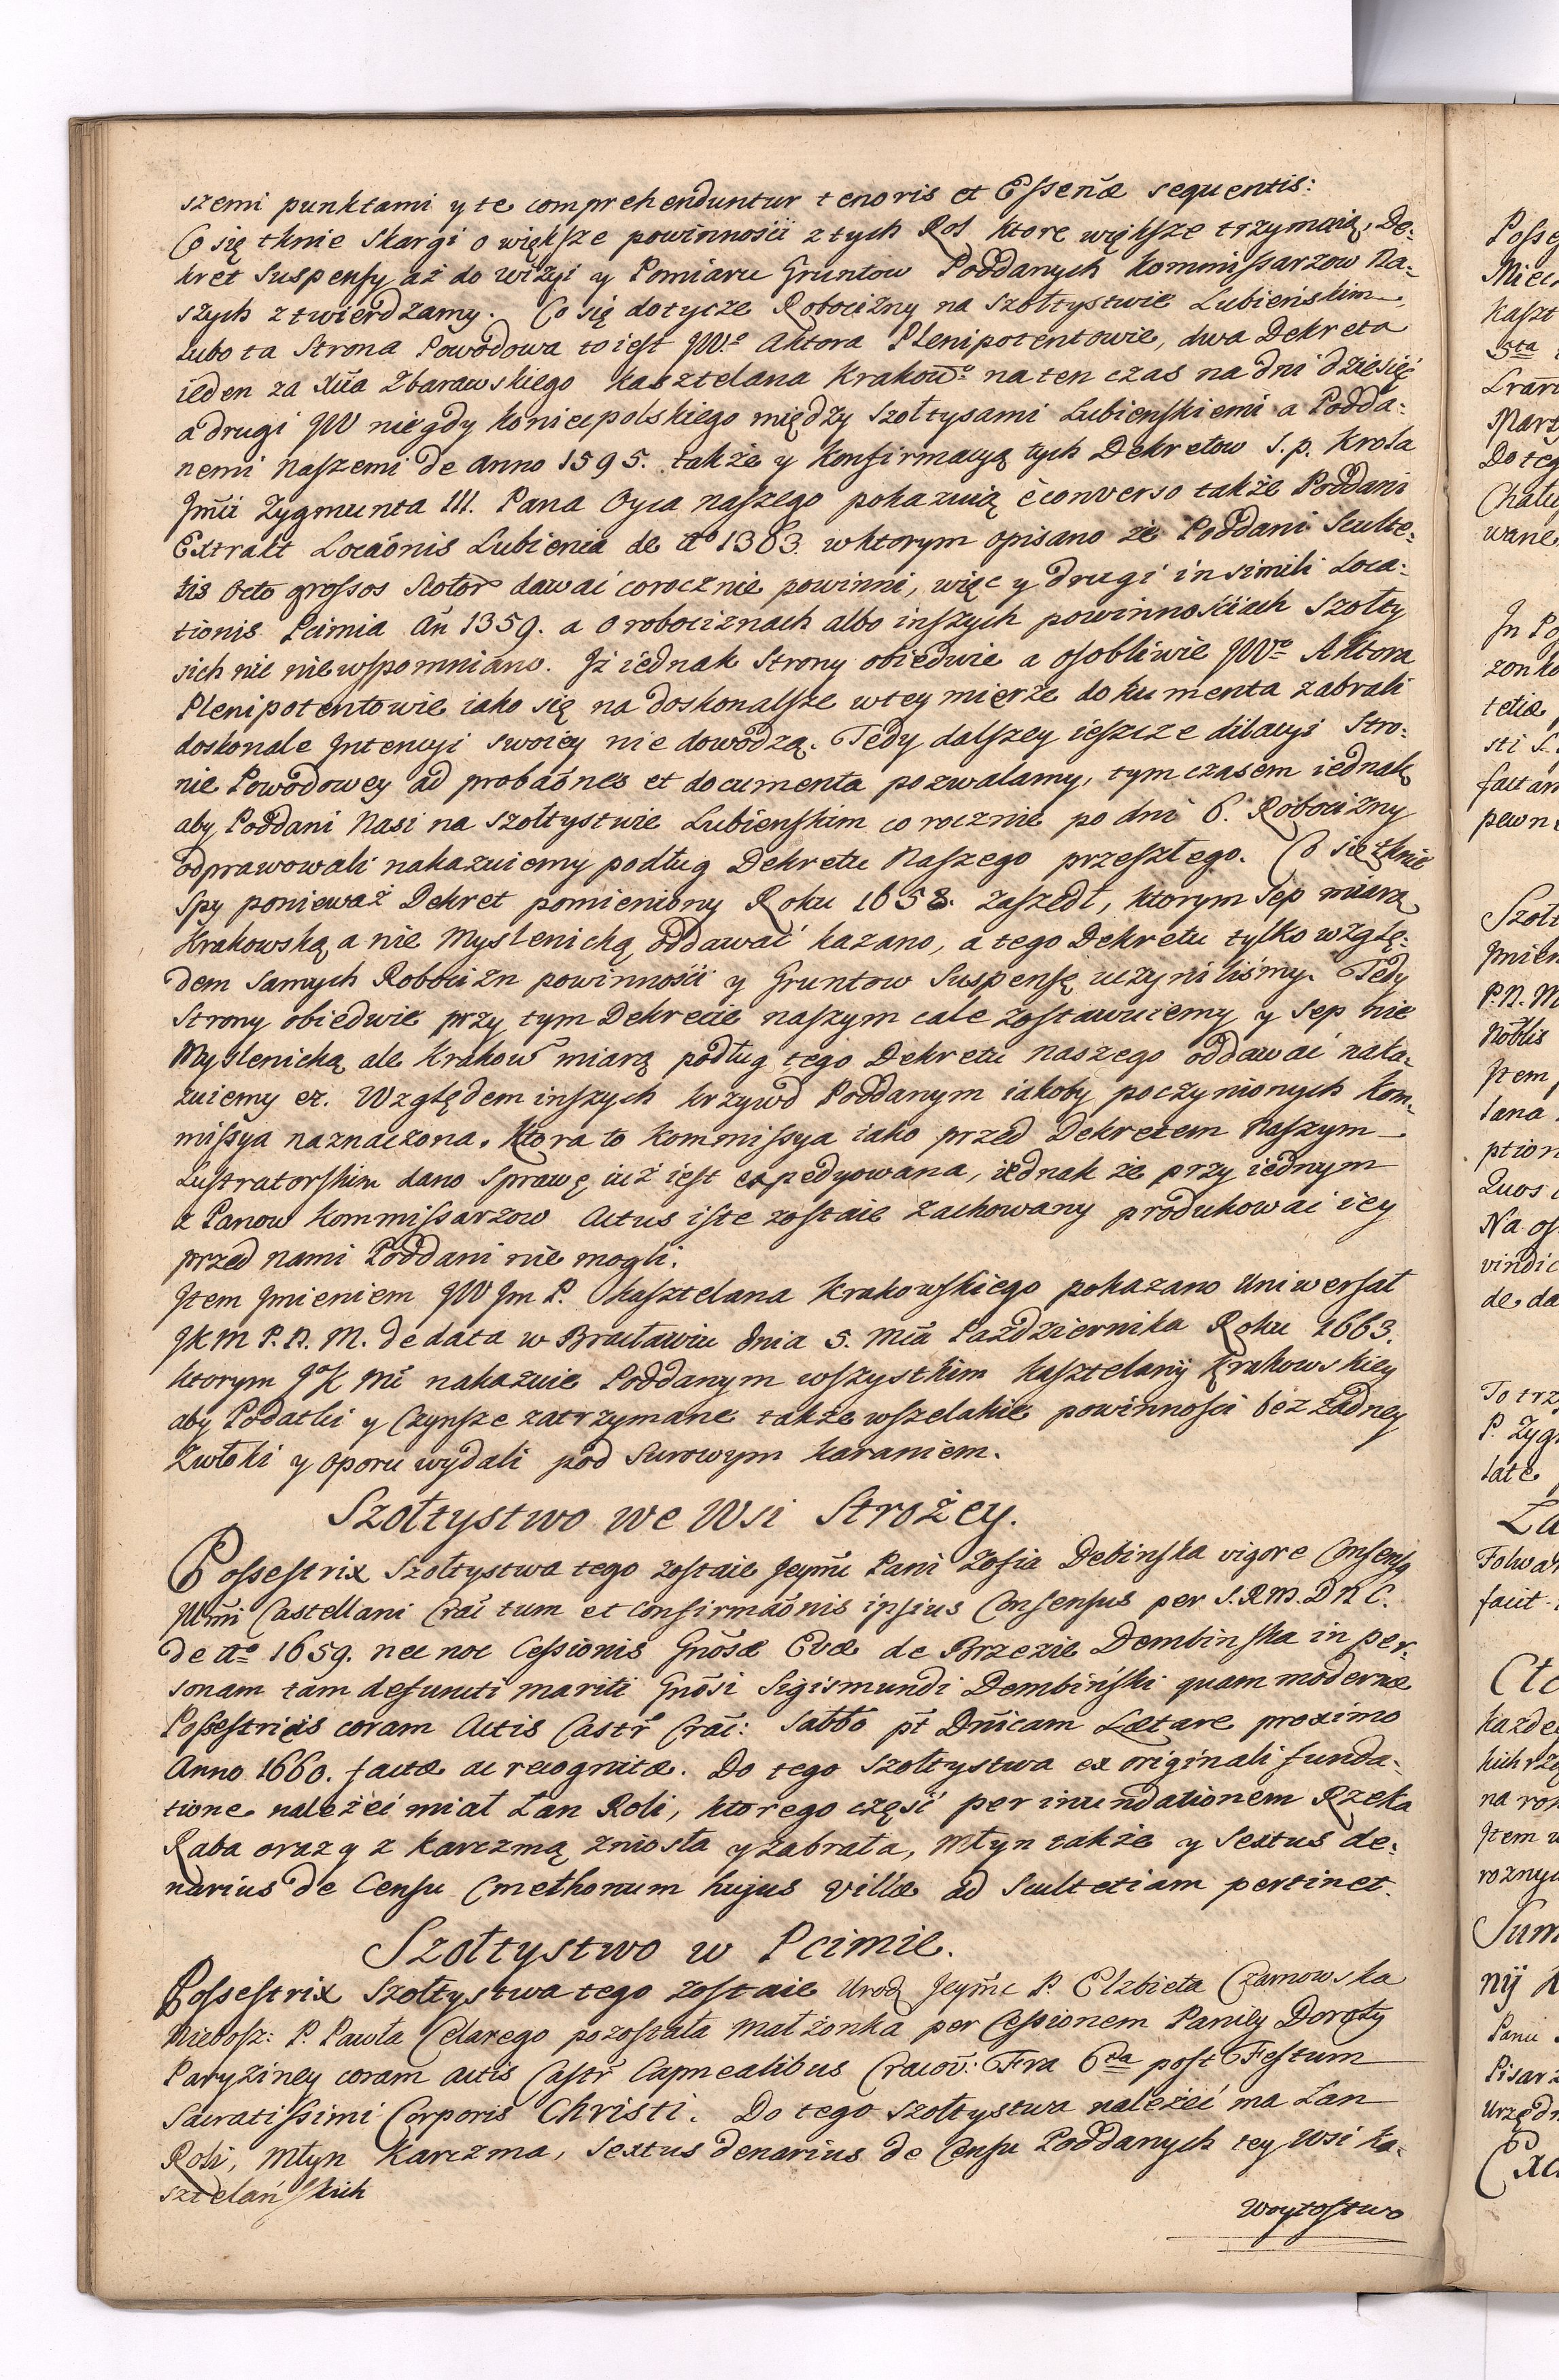 szemi punktami y te comprehenduntur tenoris et Essen̄æ sequentis:
Co się tknie Skargi o większe powinności z tych Rol ktore większe trzymaią, De-
kret Suspensy aż do wizyi y Pomiaru Gruntow Poddanych Kommissarzow Na-
szych ztwierdzamy. Co się dotycze Robocizny na Szołtystwie Lubieńskim
lubo ta Strona Powodowa to iest JWo Aktora Plenipotentowie, dwa Dekreta
ieden za Xcia Zbarawskiego Kasztelana Krakowo na ten czas na dni dziesięć
a drugi JW niegdy Koniecpolskiego między Szołtysami Lubienskiemi a Podda-
nemi Naszemi de Anno 1595. także y Konfirmacyą tych Dekretow S.p. Krola
Jmci Zygmunta III. Pana Oyca Naszego pokazuią è converso także Poddani
Extrakt Locaõnis Lubienia de Ao 1363. w ktorym opisano że Poddani Sculte-
tis Octo grossos Scotor dawać corocznie powinni, więc y drugi in simili Loca-
tionis Pcimia An 1359. a o robociznach albo inszych powinnościach Szołty
sich nic nie wspomniano. Jż iednak Strony obiedwie a osobliwie JWo Aktora
Plenipotentowie iako się na doskonalsze w tey mierze dokumenta zabrali
doskonale Jntencyi swoiey nie dowodzą. Tedy dalszey ieszcze dilacyi Stro-
nie Powodowey ad probaõnes et documenta pozwalamy, tym czasem iednak
aby Poddani Nasi na Szołtystwie Lubienskim corocznie po dni 6. Robocizny
odprawowali nakazuiemy podług Dekretu Naszego przeszłego. Co się tknie
Spy ponieważ Dekret pomieniony Roku 1658. zaszedł, ktorym Sep miarą
Krakowską a nie Myslenicką oddawać kazano, a tego Dekretu tylko wzglę-
dem Samych Robocizn powinności y Gruntow Suspensę uczyniliśmy. Tedy
Strony obiedwie przy tym Dekrecie naszym cale zostawuiemy y Sep nie
Myslenicką ale Krakow miarą podług tego Dekretu naszego oddawać naka-
zuiemy etc. Względem inszych krzywd Poddanym iakoby poczynionych Kom-
missya naznaczona. Ktora to Kommissya iako przed Dekretem Naszym
Lustratorskim dano Sprawę iuż iest expedyowana, iednak że przy iednym
z Panow Kommissarzow Actus iste zostaie zachowany produkować iey
przed nami Poddani nie mogli.
Jtem Jmieniem JW Jm P. Kasztelana Krakowskiego pokazano Uniwersał
JKM P.N.M. de data w Bracławiu dnia 5. Mca Października Roku 1663.
ktorym JoK Mć nakazuie Poddanym wszystkim Kasztelanij Krakowskiey
aby Podatki y Czynsze zatrzymane także wszelakie powinności bez żadney
Zwłoki y oporu wydali pod Surowym Karaniem.
Szołtystwo we Wsi Strożey.
Possestrix Szołtystwa tego zostaie Jeymć Pani Zofia Debinska vigore Consensq
Jllmi Castellani Crac̄ tum et Confirmaõnis ipsius Consensus per S.R.M. DNC.
de Ao 1659. nec non Cessionis Gnõsæ Evæ de Brzezie Dembinska in per-
sonam tam defuncti mariti Gnõsi Sigismundi Dembiński quam modernæ
Possestricis coram Actis Castr̃ Crac̄: Sabbo pt̃ Dn̄icam Lætare proximo
Anno 1660. factæ ac recognitæ. Do tego Szołtystwa ex originali funda-
tione należeć miał Łan Roli, ktorego część per inundationem Rzeka
Raba oraz y z Karczmą zniosła y zabrała, Młyn także y Sextus de-
narius de Censu Cmethonum hujus villæ ad Scultetiam pertinet.
Szołtystwo w Pcimie.
Possestrix Szołtystwa tego zostaie Urodz Jeymc P. Elżbieta Czarnowska
Niebosz: P. Pawła Celarego pozostała Małżonka per Cessionem Panny Doroty
Paryziney coram actis Castr̃ Capnealibus Cracov̄: Fra 6ta post Festum
Sacratissimi Corporis Christi. Do tego Szołtystwa należeć ma Łan
Roli, Młyn Karczma, Sextus denarius de Censu Poddanych tey Wsi Ka-
sztelańskich
Woytostwo